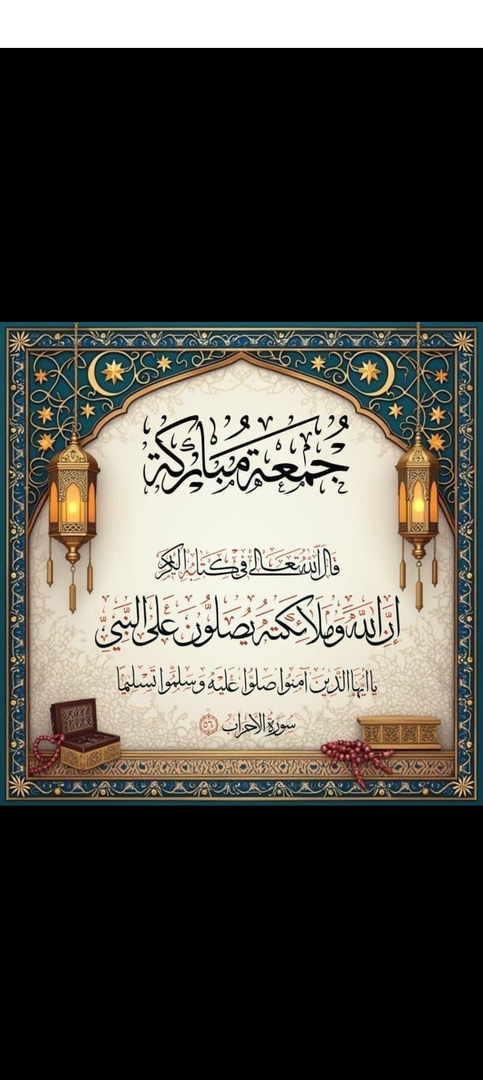 جُمعَة مُبَارَكة
قَالَ اللهُ تَعَالَىٰ فِي كِتَابِهِ الكَرِيم
إِنَّ اللهَ وَمَلَائِكَتَهُ يُصَلُّونَ عَلَى النَّبِيِّ
يَا أَيُّهَا الَّذِينَ آمَنُوا صَلُّوا عَلَيْهِ وَسَلِّمُوا تَسْلِيمًا
سورة الأحزاب ٥٦